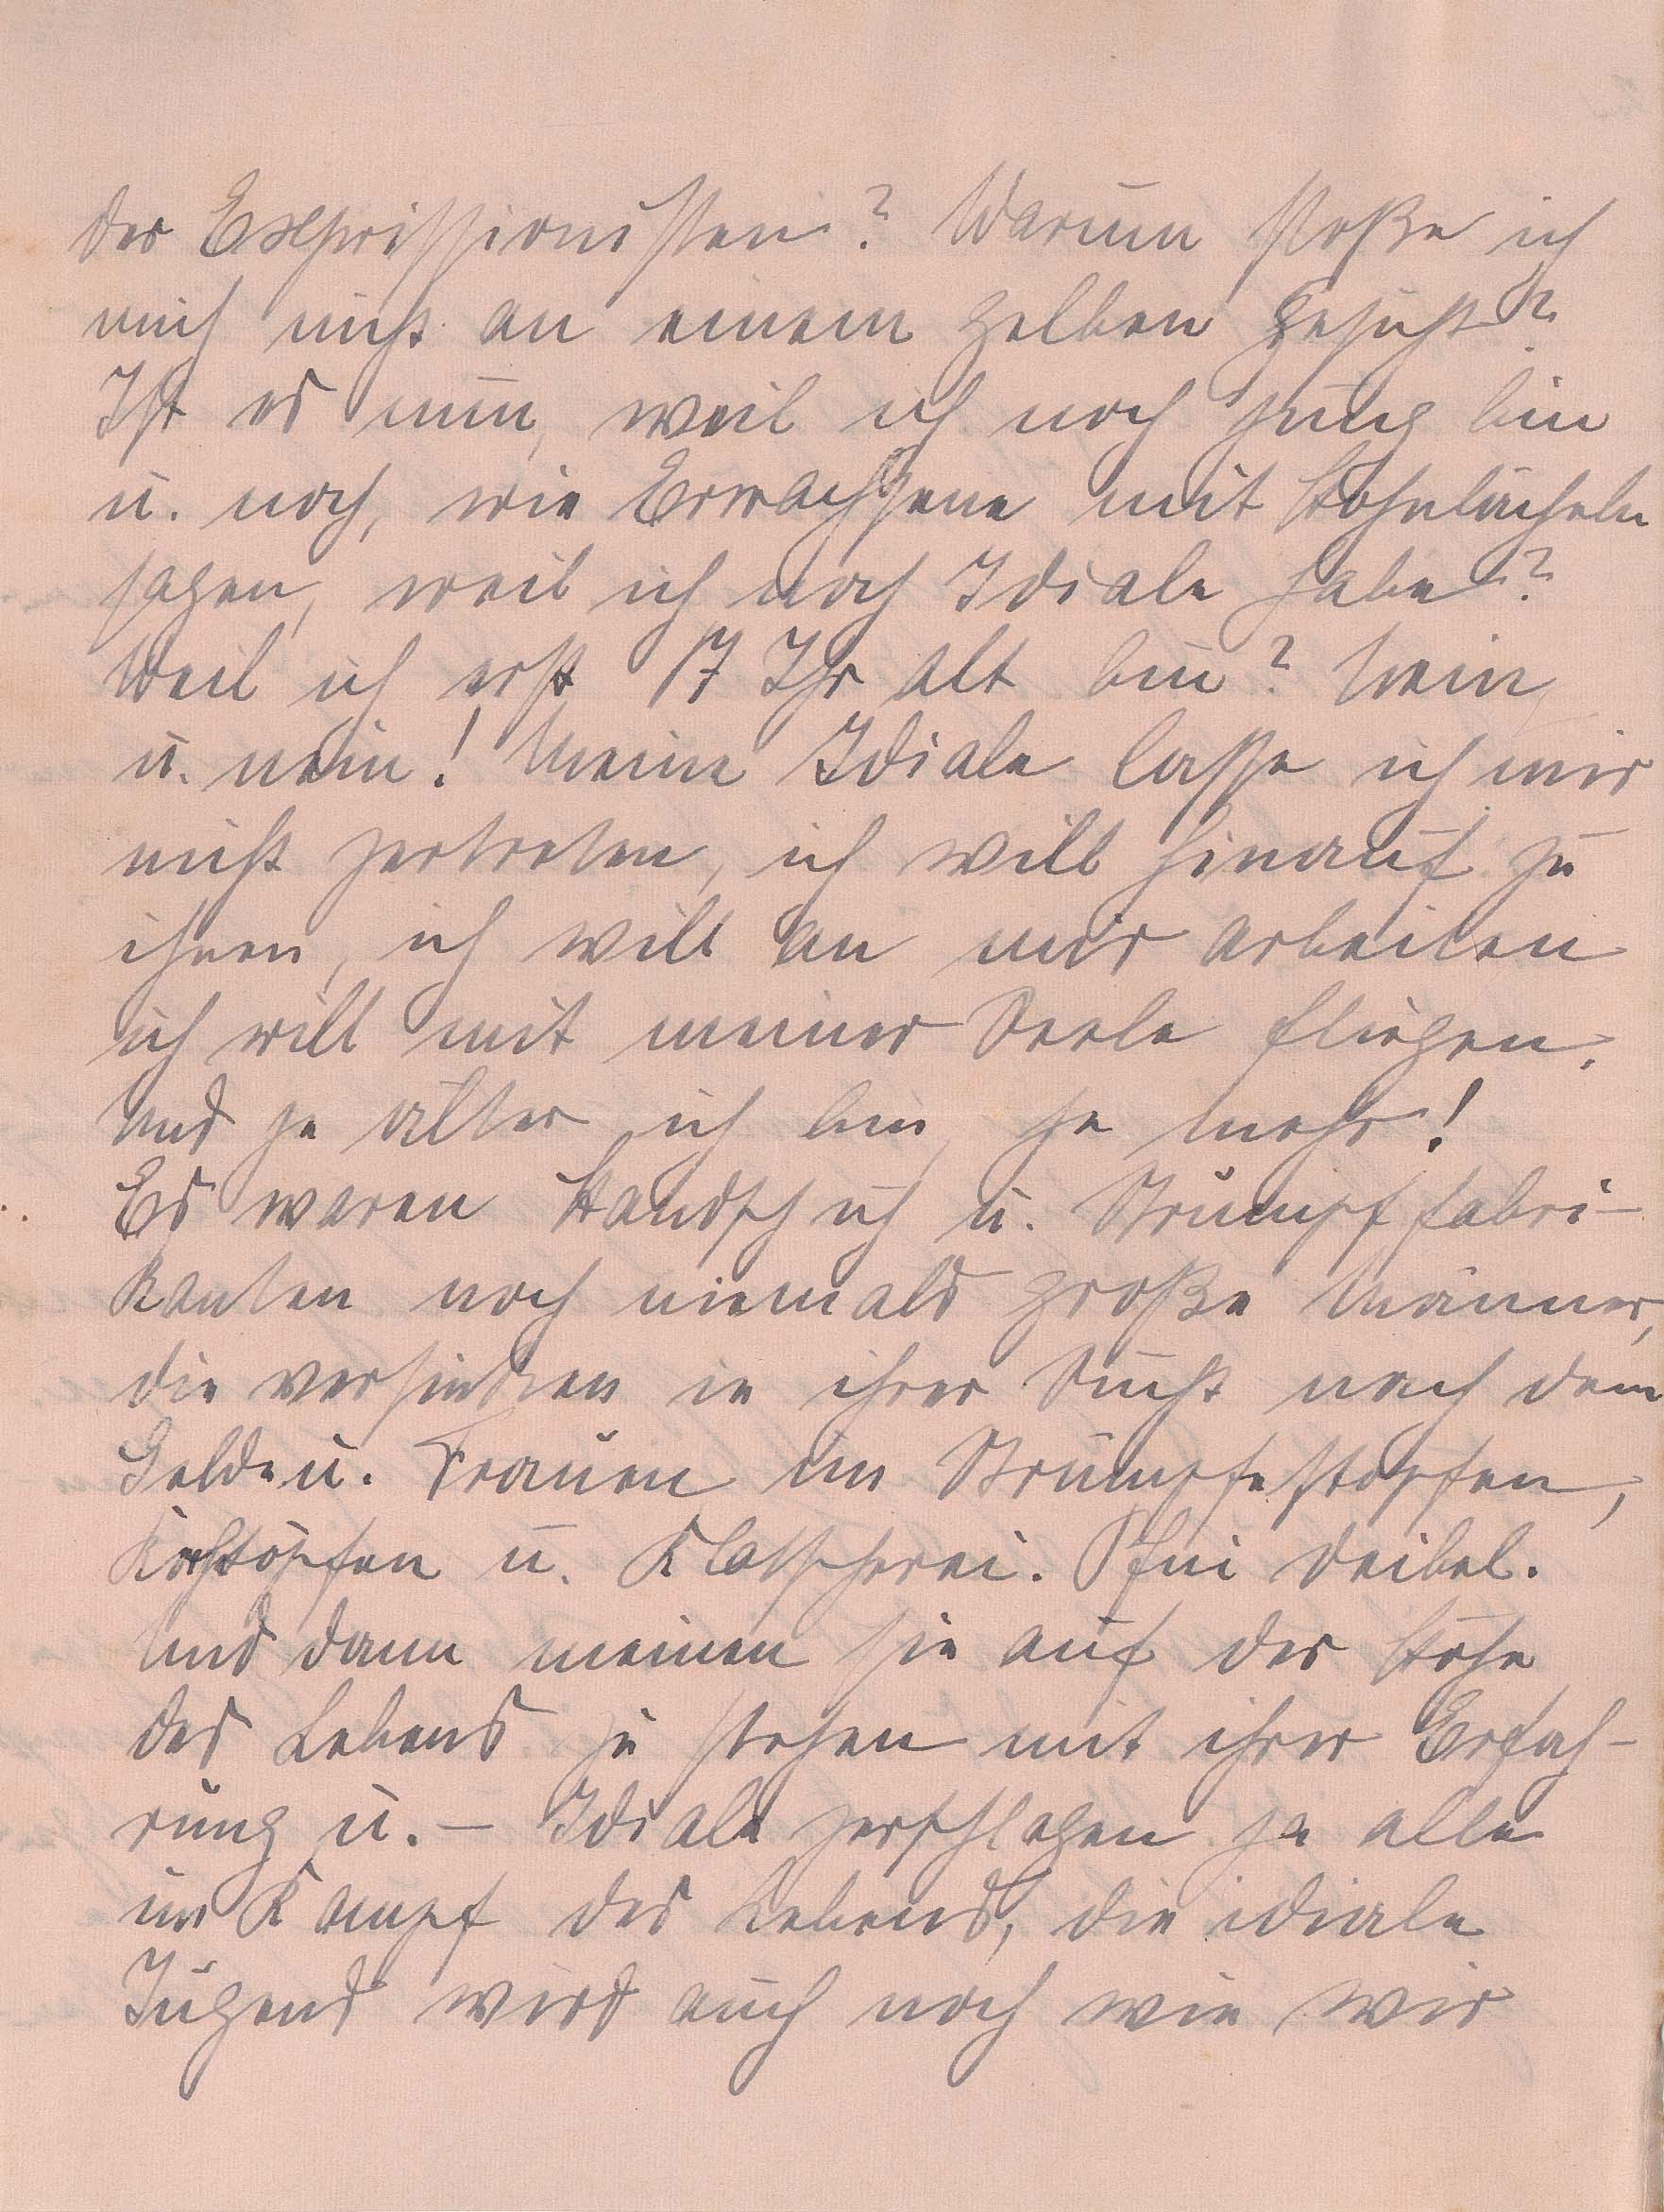 der Expressionisten? Warum stoße ich
mich nicht an einem gelben Gesicht?
Ist es nun, weil ich noch jung bin
u. noch, wie Erwachsene mit Hohnlächeln
sagen, weil ich noch Idiale habe?
Weil ich erst 17 Jhr alt bin? Nein,
u. nein! Meine Idiale lasse ich mir
nicht zertreten, ich will hinauf zu
ihnen, ich will an mir arbeiten
ich will mit meiner Seele fliegen.
Und je älter ich bin, je mehr!
Es waren Handschuh u. Strumpffabri-
kanten noch niemals große Männer,
die versinken in ihrer Sucht nach dem
Gelde u. Frauen im Strümpfestopfen,
Kochtöpfen u. Klatscherei. Pfui Deibel.
Und dann meinen sie auf der Höhe
des Lebens zu stehen mit ihrer Erfah-
rung u. – Idiale zerschlagen ja alle
im Kampf des Lebens, die idiale
Jugend wird auch noch wie wir